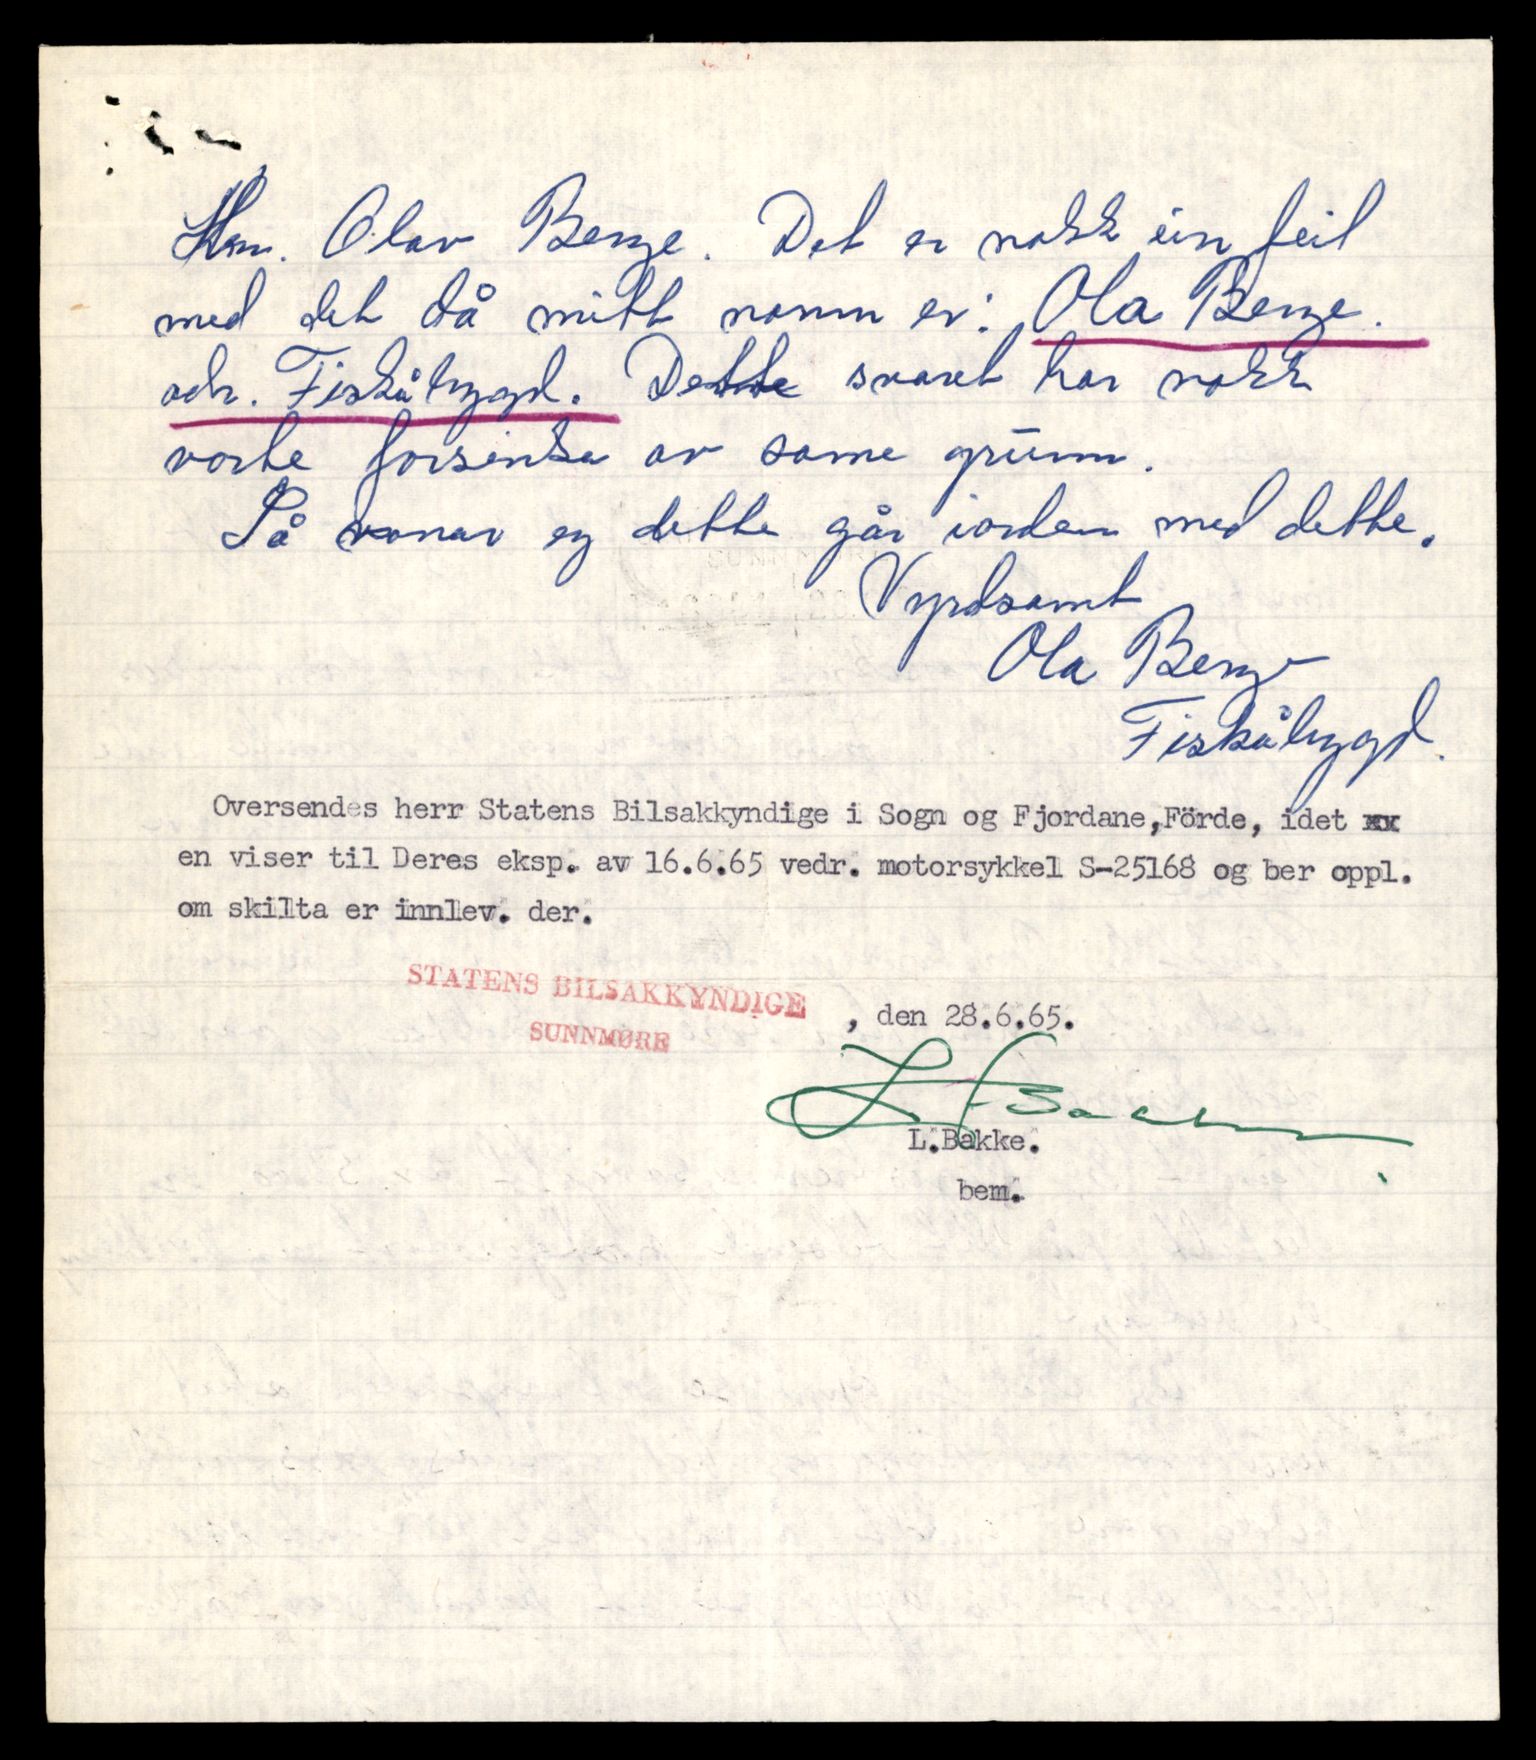 Hr. Olav Berge. Det er nokk ein feil
med det då mitt namn er: Ola Berge.
adr. Fiskåbygd. Dette svaret har nokk
vorte forsinka av same grunn.
Så vonar eg dette går iorden med dette.
Vyrdsamt
Ola Berge
Fiskåbygd.
Oversendes herr Statens Bilsakkyndige i Sogn og Fjordane,Förde, idet xx
en viser til Deres eksp. av 16.6.65 vedr. motorsykkel S-25168 og ber oppl.
om skilta er innlev. der.
STATENS BILSAKKYNDIGE
SUNNMØRE
, den 28.6.65.
L. Bakke
L.Bakke.
bem.